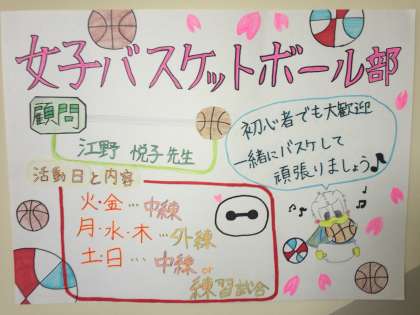 女子バスケットボール部
顧問
江野 悦子先生
初心者でも大歓迎
一緒にバスケして
頑張りましょう♪
活動日と内容
火・金…中練
月・水・木…外練
土・日…中練or
練習試合